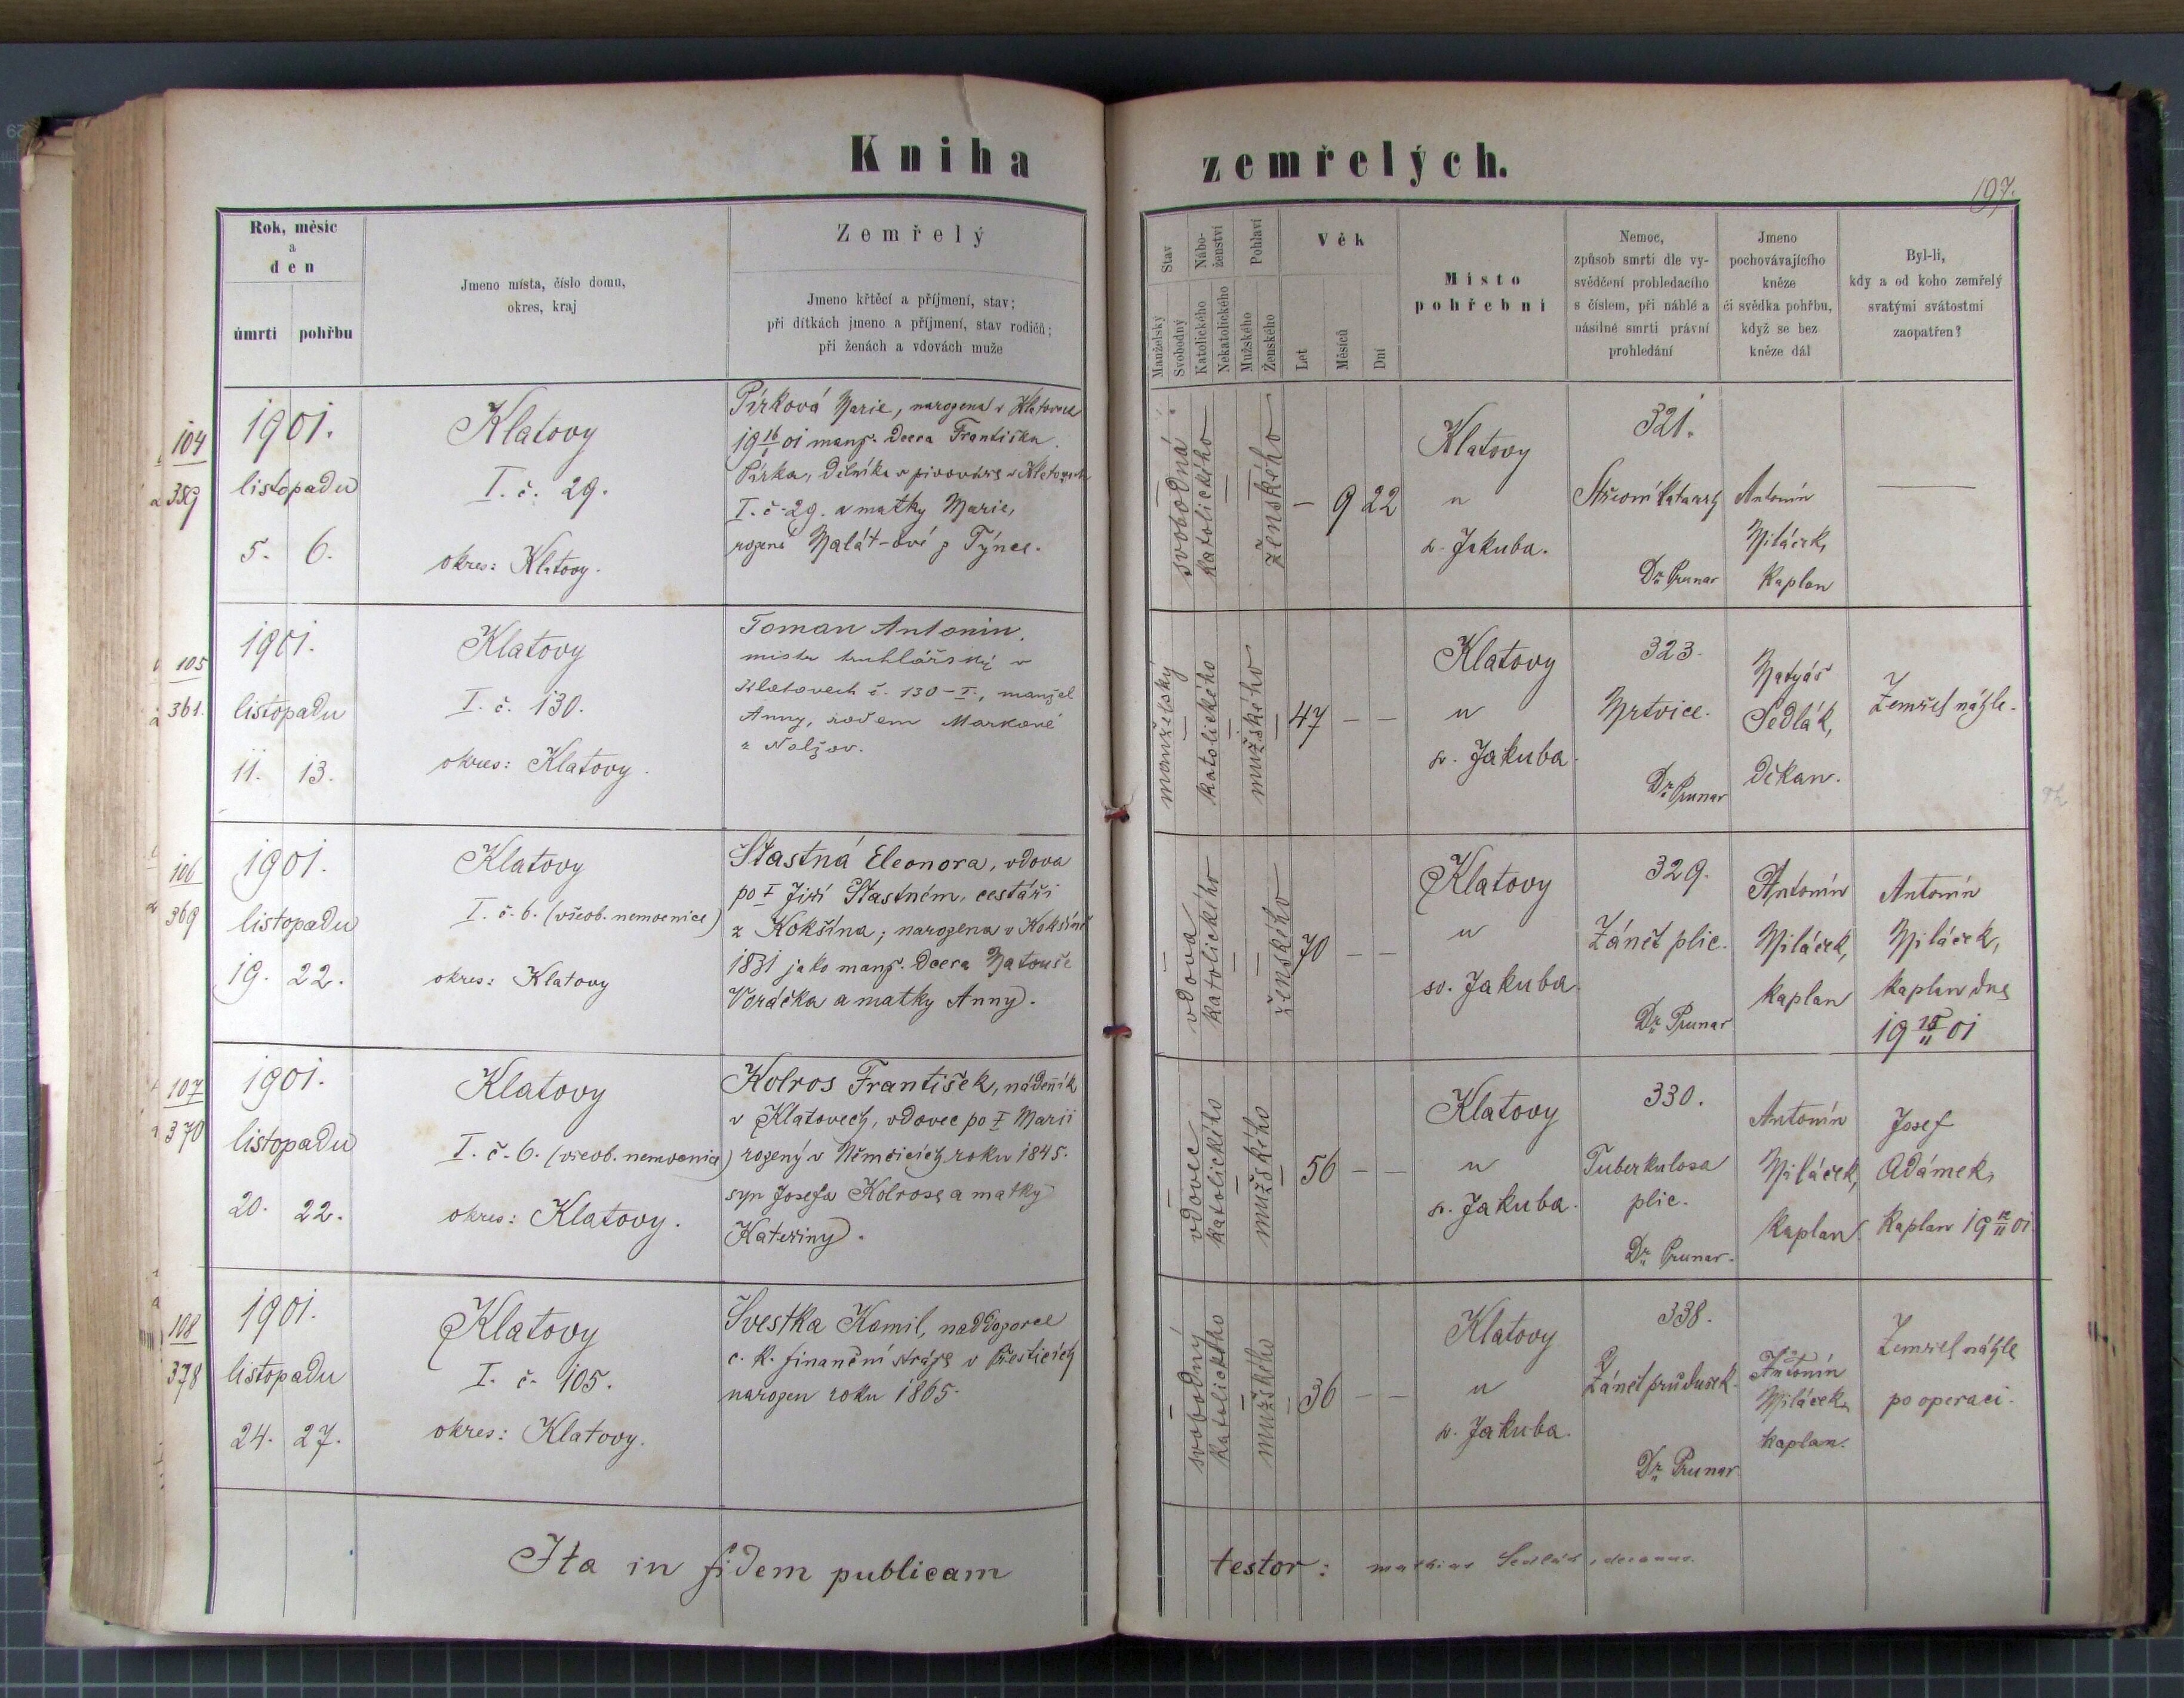 Kniha zemřelých.
197.
Rok, měsíc
a
den
úmrtí pohřbu
Jmeno místa, číslo domu,
okres, kraj
Zemřelý
Jmeno křtěcí a příjmení, stav;
při dítkách jmeno a příjmení, stav rodičů;
při ženách a vdovách muže
Stav
Manželský
Svobodný
Nábo-
ženství
Katolického
Nekatolického
Pohlaví
Mužského
Ženského
Věk
Let
Měsíců
Dní
Místo
pohřební
Nemoc,
způsob smrti dle vy-
svědčení prohledacího
s číslem, při náhlé a
násilné smrti právní
prohledání
Jmeno
pochovávajícího
kněze
či svědka pohřbu,
když se bez
kněze dál
Byl-li,
kdy a od koho zemřelý
svatými svátostmi
zaopatřen?
104
359
1901.
listopadu
5. 6.
Klatovy
I. č. 29.
okres: Klatovy.
Pírková Marie, narozena v Klatovech
19 16/I 01 manž. dcera Františka
Pírka, dělníka v pivováře v Klatovech
I. č. 29. a matky Marie,
rozené Malát-ové z Týnce.
svobodná
katolického
ženského
– 9 22
Klatovy
u
s. Jakuba.
321.
Střevní katarrh
Dr Prunar
Antonín
Miláček,
kaplan
105
361.
1901.
listopadu
11. 13.
Klatovy
I. č. 130.
okres: Klatovy.
Toman Antonín,
mistr truhlářský v
Klatovech č. 130-I., manžel
Anny, rodem Markové
z Nalžov.
manželský
katolického
mužského
47 – –
Klatovy
u
s. Jakuba.
323.
Mrtvice.
Dr Prunar
Matyáš
Sedlák,
děkan.
Zemřel náhle.
106
369
1901.
listopadu
19. 22.
Klatovy
I. č. 6. (všeob. nemocnice)
okres: Klatovy
Šťastná Eleonora, vdova
po † Jiří Šťastném, cestáři
z Kokšína; narozena v Kokšíně
1831 jako manž. dcera Matouše
Voráčka a matky Anny.
vdova
katolického
ženského
70 – –
Klatovy
u
sv. Jakuba
329.
Zánět plic.
Dr Prunar
Antonín
Miláček,
kaplan
Antonín
Miláček,
kaplan dne
19 18/11 01
107
370
1901.
listopadu
20. 22.
Klatovy
I. č. 6. (všeob. nemocnice)
okres: Klatovy.
Kolros František, nádenník
v Klatovech, vdovec po † Marii
rozený v Němčicích roku 1845.
syn Josefa Kolrosa a matky
Kateřiny.
vdovec
katolického
mužského
56 – –
Klatovy
u
s. Jakuba.
330.
Tuberkulosa
plic.
Dr Prunar.
Antonín
Miláček,
kaplan
Josef
Adámek,
kaplan 19 12/11 01
108
378
1901.
listopadu
24. 27.
Klatovy
I. č. 105.
okres: Klatovy.
Švestka Kamil, naddozorce
c. k. finanční stráže v Přesticích
narozen roku 1865.
svobodný
katolického
mužského
36 – –
Klatovy
u
s. Jakuba.
338.
Zánět průdušek.
Dr Prunar
Antonín
Miláček,
kaplan.
Zemřel náhle
po operaci.
Ita in fidem publicam testor: Mathias Sedlák, decanus.